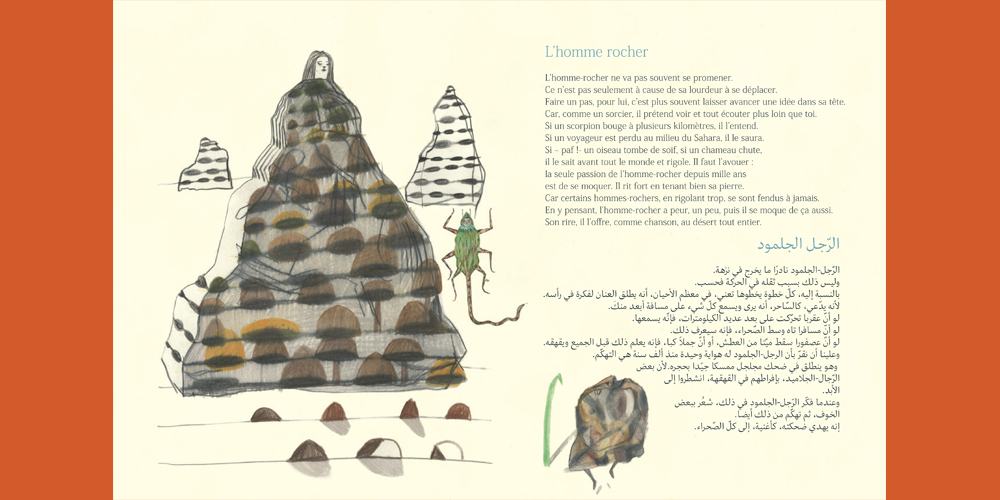 L'homme rocher
L'homme-rocher ne va pas souvent se promener.
Ce n'est pas seulement à cause de sa lourdeur à se déplacer.
Faire un pas, pour lui, c'est plus souvent laisser avancer une idée dans sa tête.
Car, comme un sorcier, il prétend voir et tout écouter plus loin que toi.
Si un scorpion bouge à plusieurs kilomètres, il l'entend.
Si un voyageur est perdu au milieu du Sahara, il le saura.
Si - paf !- un oiseau tombe de soif, si un chameau chute,
il le sait avant tout le monde et rigole. Il faut l'avouer :
la seule passion de l'homme-rocher depuis mille ans
est de se moquer. Il rit fort en tenant bien sa pierre.
Car certains hommes-rochers, en rigolant trop, se sont fendus à jamais.
En y pensant, l'homme-rocher a peur, un peu, puis il se moque de ça aussi.
Son rire, il l'offre, comme chanson, au désert tout entier.
الرّجل الجلمود
الرّجل-الجلمود نادرًا ما يخرج في نزهة.
وليس ذلك بسبب ثقله في الحركة فحسب.
بالنسبة إليه، كلّ خطوة يخطوها تعني، في معظم الأحيان، أنه يطلق العنان لفكرة في رأسه.
لأنه يدّعي، كالسّاحر، أنه يرى ويسمع كلّ شيء على مسافة أبعد منك.
لو أنّ عقربا تحرّكت على بعد عديد الكيلومترات، فإنّه يسمعها.
لو أنّ مسافرا تاه وسط الصّحراء، فإنه سيعرف ذلك.
لو أنّ عصفورا سقط ميّتا من العطش، أو أنّ جملاً كبا، فإنه يعلم ذلك قبل الجميع ويقهقه.
وعلينا أن نقرّ بأن الرجل-الجلمود له هواية وحيدة منذ ألف سنة هي التهكّم.
وهو ينطلق في ضحك مجلجل ممسكا جيّدا بحجره.لأن بعض
الرّجال-الجلاميد، بإفراطهم في القهقهة، انشطروا إلى
الأبد.
وعندما فكّر الرّجل-الجلمود في ذلك، شعُر ببعض
الخوف، ثم تهكّم من ذلك أيضا.
إنه يهدي ضحكته، كأغنية، إلى كلّ الصّحراء.